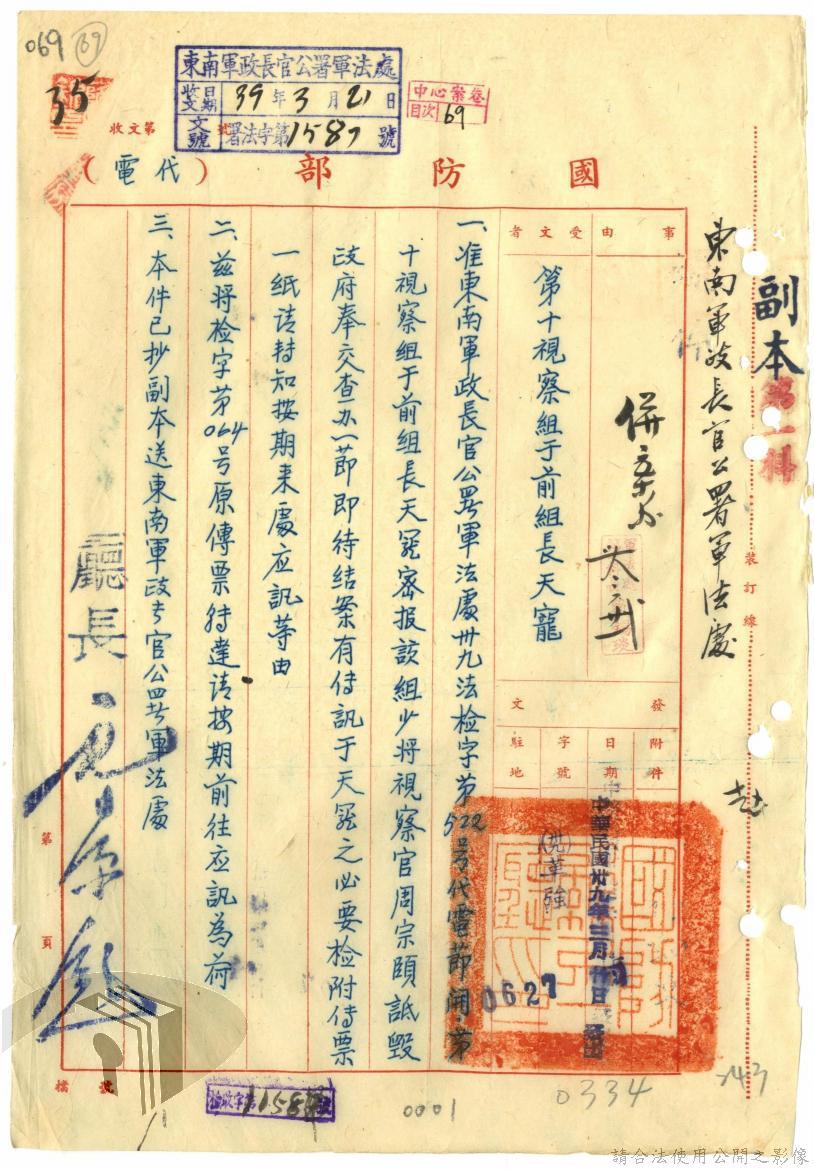 069
69
35
東南軍政長官公署軍法處
收文
日期
39年3月21日
文號
署法字第1587號
中心案卷
目次 69
收文第　號
國防部（代電）
副本
第一科
東南軍政長官公署軍法處
裝訂線
事由
受文者
併案办
第十視察組于前組長天寵
發文
附件
日期
字號
駐地
中華民國卅九年三月廿日
0627
一、准東南軍政長官公署軍法處卅九法检字苐522号代電節開、苐
十視察組于前組長天寵密报該組少將視察官周宗頤詆毀
政府奉交查办一節即待結案有传訊于天寵之必要检附传票
一纸请转知按期来處应訊等由
二、茲将检字苐064号原傳票转達请按期前往应訊為荷
三、本件已抄副本送東南軍政长官公署軍法處
廳長
第　頁
檔號
1158
0001
0334
請合法使用公開之影像